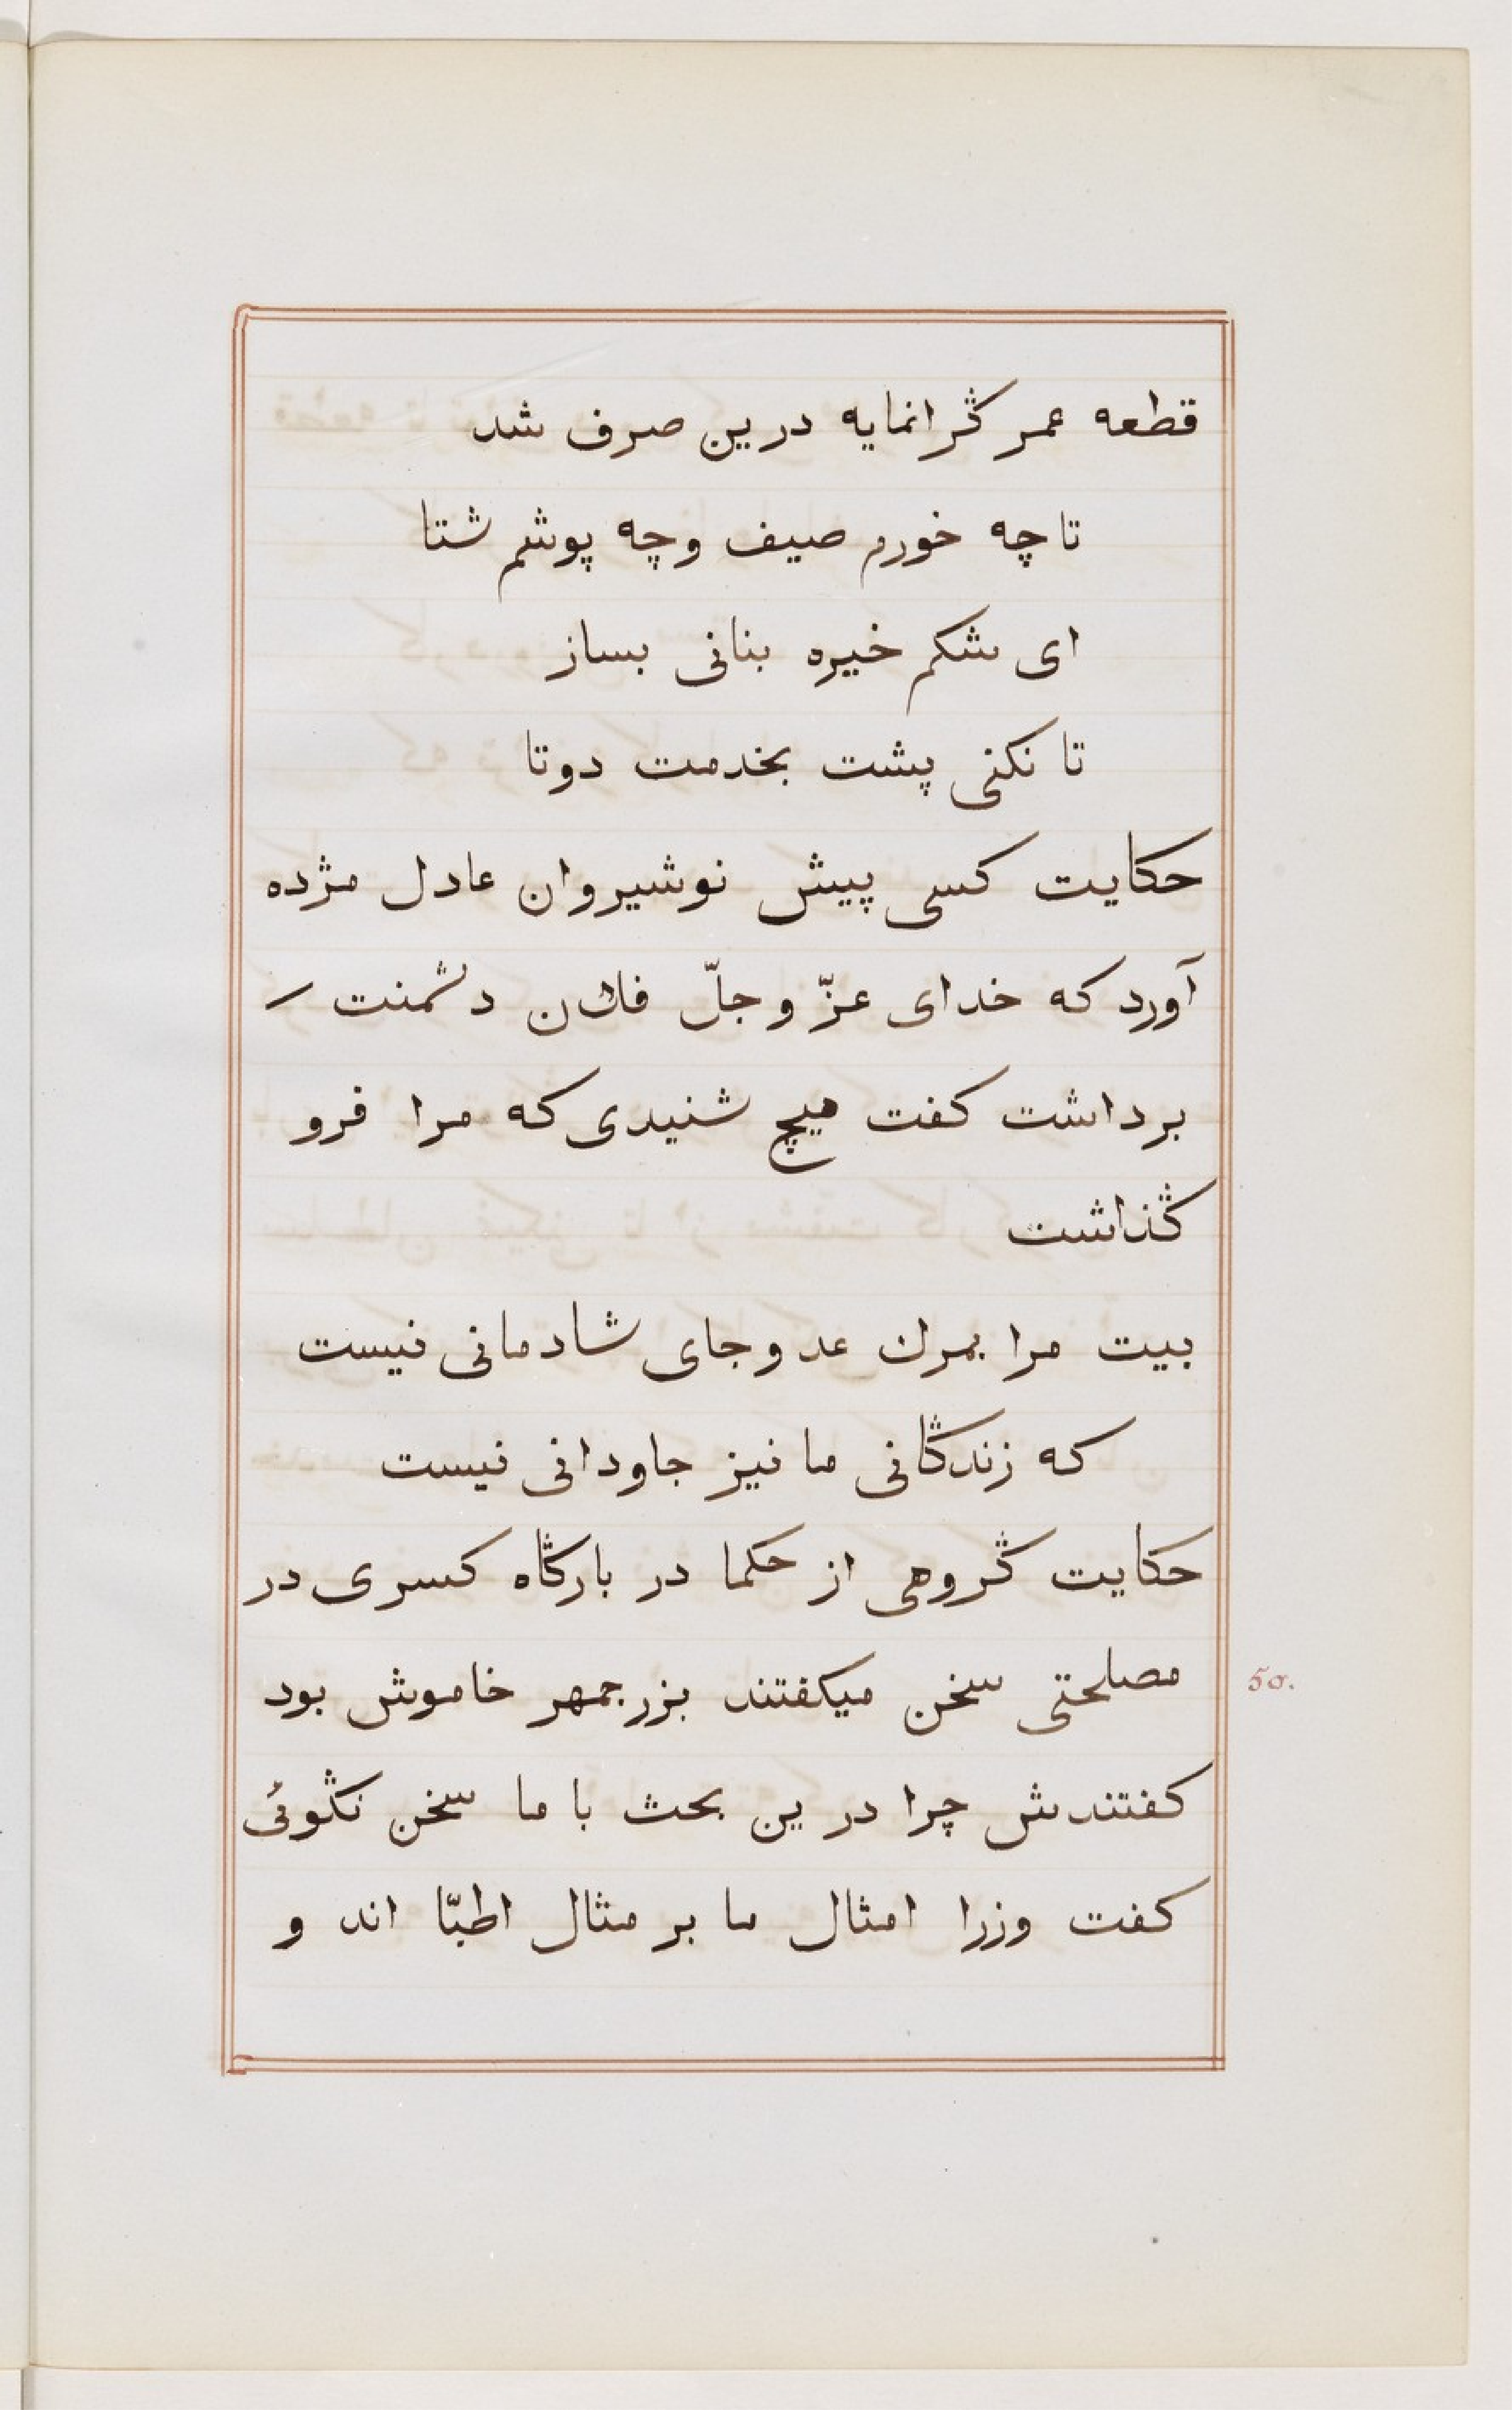 قطعه عمر گرانمایه درین صرف شد
تا چه خورم صیف و چه پوشم شتا
ای شکم خیره بنانی بساز
تا نکنی پشت بخدمت دوتا
حکایت کسی پیش نوشیروان عادل مژده
آورد که خدای عزّ و جلّ فلان دشمنت ر
برداشت کفت هیچ شنیدی که مرا فرو
گذاشت
بیت مرا بمرك عدو جای شادمانی نیست
که زندگانی ما نیز جاودانی نیست
حکایت گروهی از حکما در بارگاه کسری در
مصلحتی سخن میکفتند بزرجمهر خاموش بود
50.
کفتندش چرا درین بحث با ما سخن نگوئی
کفت وزرا امثال ما بر مثال اطبّا اند و